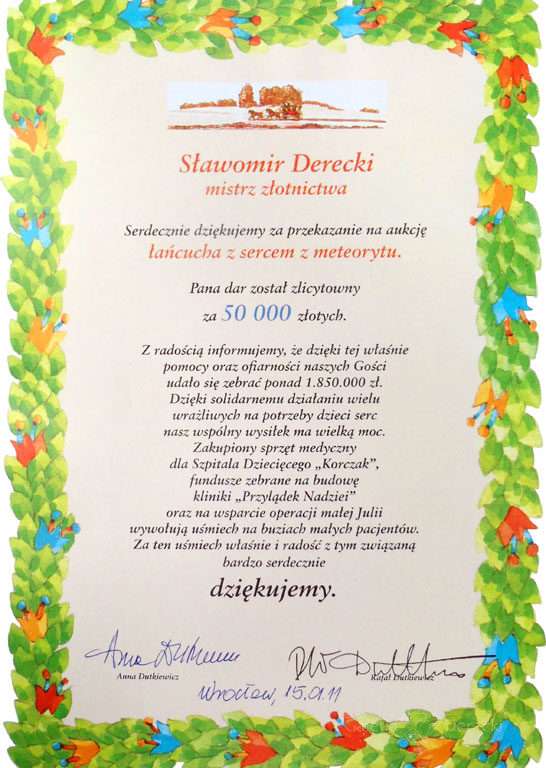 Sławomir Derecki
mistrz złotnictwa
Serdecznie dziękujemy za przekazanie na aukcję
łańcucha z sercem z meteorytu.
Pana dar został zlicytowny
za 50 000 złotych.
Z radością informujemy, że dzięki tej właśnie
pomocy oraz ofiarności naszych Gości
udało się zebrać ponad 1.850.000 zł.
Dzięki solidarnemu działaniu wielu
wrażliwych na potrzeby dzieci serc
nasz wspólny wysiłek ma wielką moc.
Zakupiony sprzęt medyczny
dla Szpitala Dziecięcego „Korczak”,
fundusze zebrane na budowę
kliniki „Przylądek Nadziei”
oraz na wsparcie operacji małej Julii
wywołują uśmiech na buziach małych pacjentów.
Za ten uśmiech właśnie i radość z tym związaną
bardzo serdecznie
dziękujemy.
Anna Dutkiewicz
Rafał Dutkiewicz
Wrocław, 15.01.11